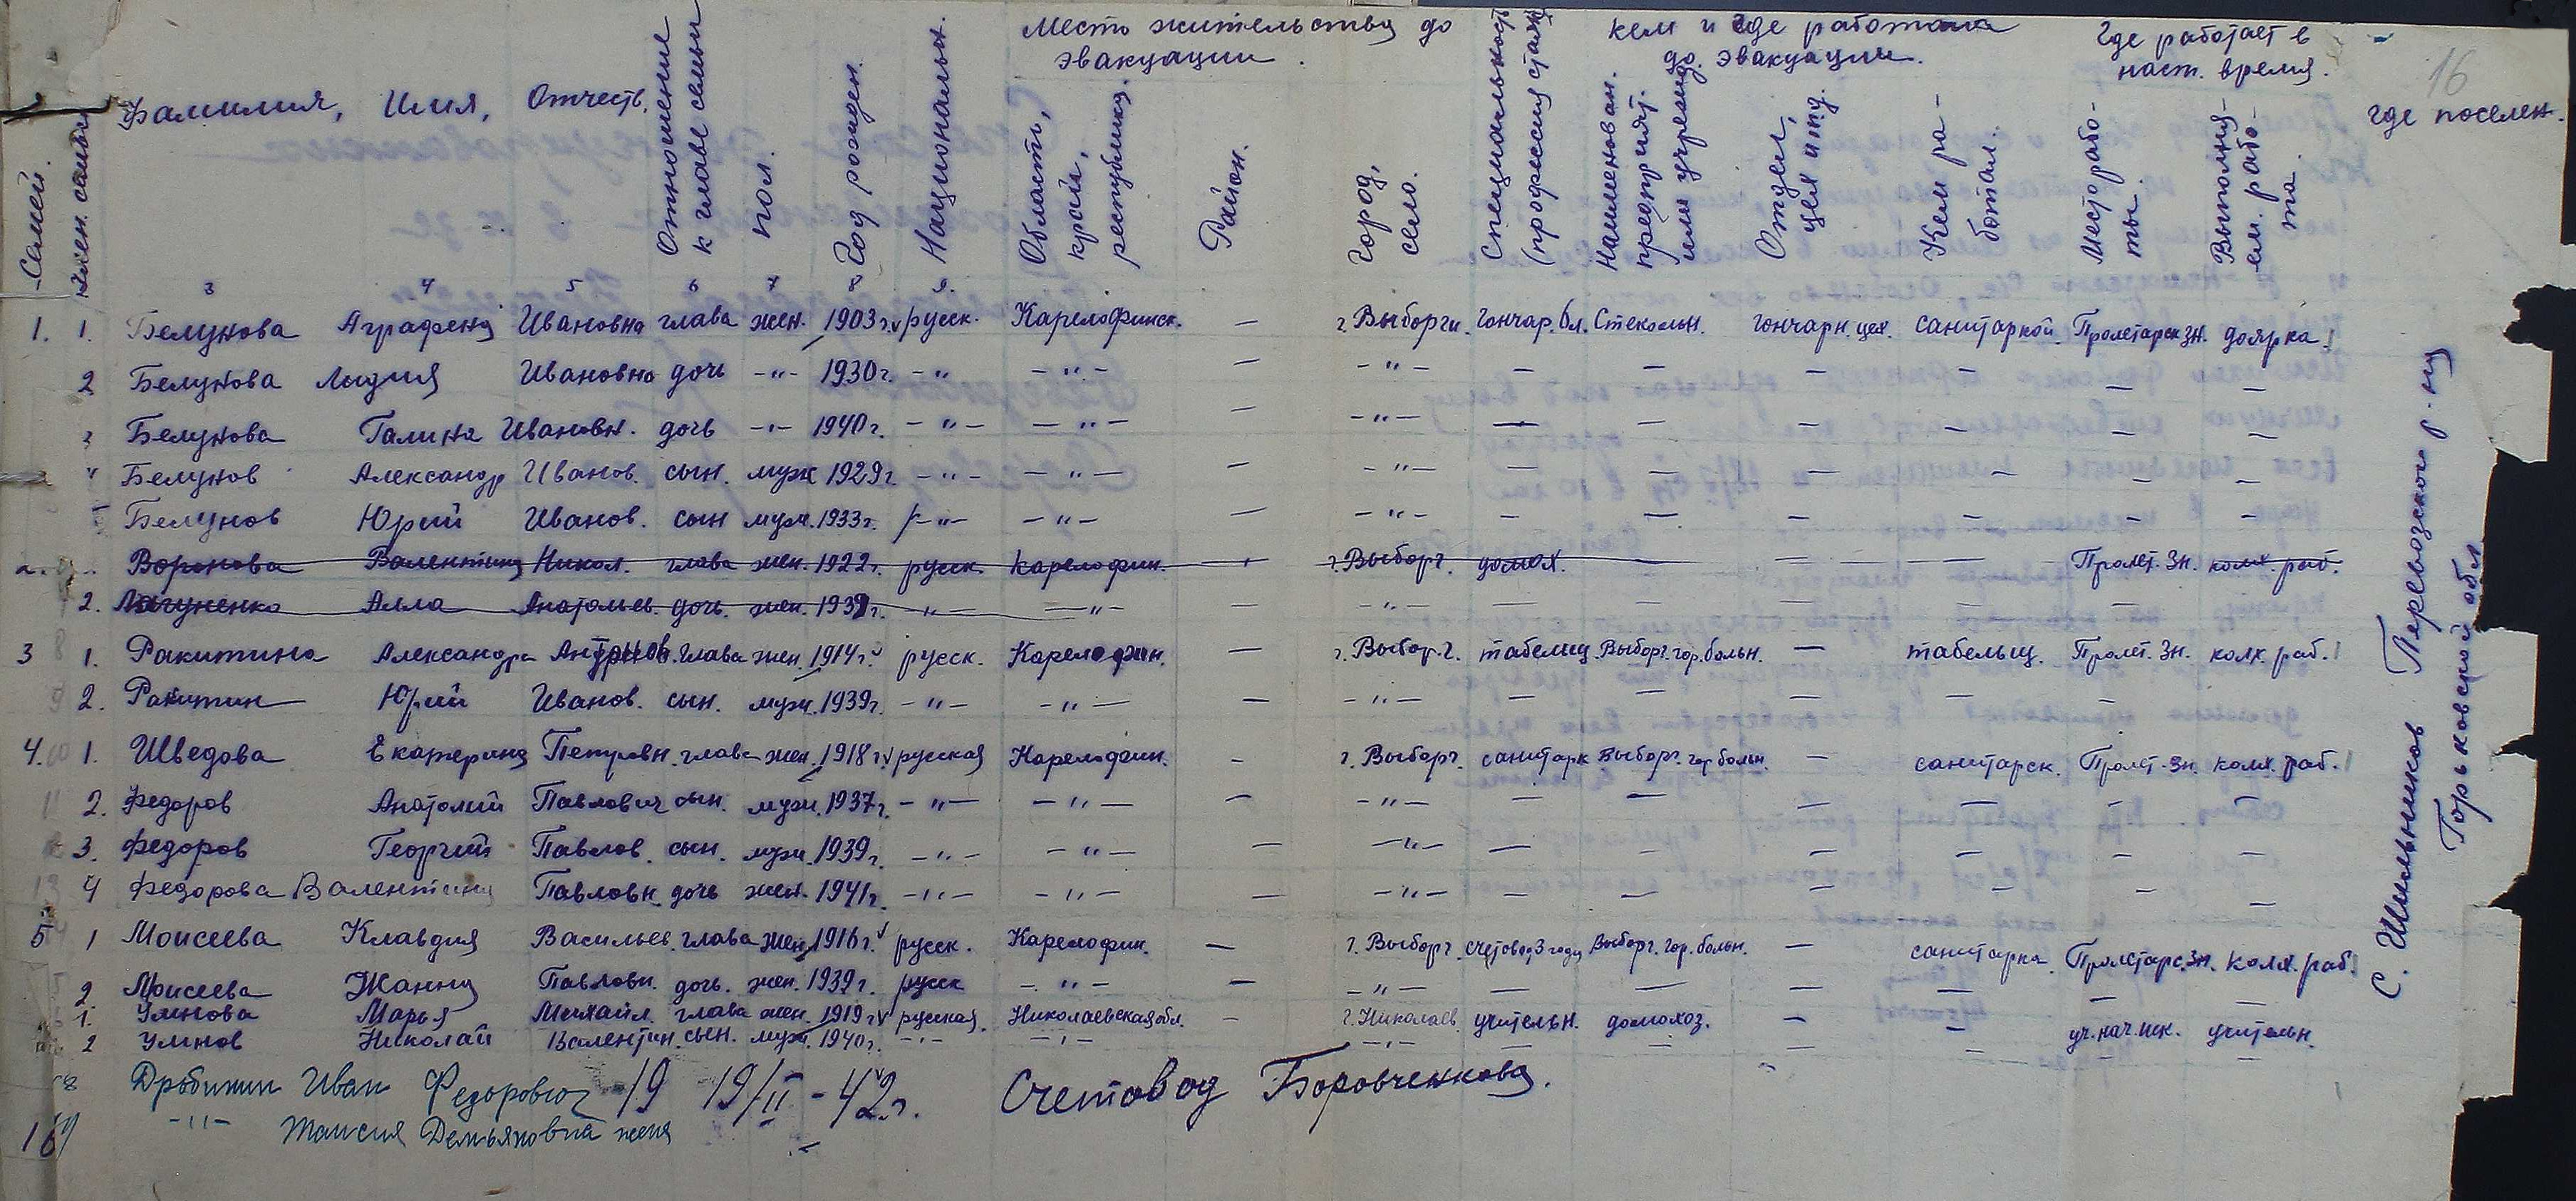 Место жительства до эвакуации.
кем и где работала до эвакуации.
Где работает в наст. время.
16
где поселен.
Семей.
член. семьи
Фамилия, Имя, Отчеств.
Отношение к главе семьи
пол.
Год рожден.
Национальн.
Область, край, республика.
Район.
Город, село.
Специальность (профессия стаж)
Наименован. предприят. или учрежд.
Отдел, цех и т.д.
Кем работал.
Место работы.
Выполняем. работа.
3 4 5 6 7 8 9.
1. 1. Белунова Аграфена Ивановна глава жен. 1903г. русск. Карелофинск. — г. Выборги. гончар. бл. Стекольн. гончарн. цех. санитаркой. Пролетарск Зн. доярка.
2 Белунова Лидия Ивановна дочь -"- 1930г. -"- -"- — -"- — — — — — —
3 Белунова Галина Ивановн. дочь -"- 1940г. -"- -"- — -"- — — — — — —
4 Белунов Александр Иванов. сын. муж 1929г. -"- -"- — -"- — — — — — —
5 Белунов Юрий Иванов. сын муж. 1933г. -"- -"- — -"- — — — — — —
2. Воронова Валентина Никол. глава жен. 1922г. русск. карелофин. — г. Выборг. домох. — — — Пролет. Зн. колх. раб.
2. Лагуненко Алла Анатольев. дочь. жен. 1939г. -"- -"- — -"- — — — — — —
3 1. Ракитина Александра Антонов. глава жен. 1914г. русск. Карелофин. — г. Выбор.г. табелищ. Выборг. гор. больн. — табельщ. Пролет. Зн. колх. раб.
2. Ракитин Юрий Иванов. сын. муж. 1939г. -"- -"- — -"- — — — — —
4. 1. Шведова Екатерина Петровн. глава жен. 1918г. русская Карелофин. - г. Выборг. санитарк Выборг. гор больн. — санитарск. Пролет. Зн. колх. раб.
2. Федоров Анатолий Павлович сын. муж. 1937г. -"- -"- — -"- — — — — — —
3. Федоров Георгий Павлов. сын. муж. 1939г. -"- -"- — -"- — — — — — —
4 Федорова Валентина Павловн. дочь жен. 1941г. -"- -"- — -"- — — — — — —
5 1 Моисеева Клавдия Васильев. глава жен. 1916г. русск. Карелофин. — г. Выборг. счетовод 3 года Выборг. гор. больн. — санитарка. Пролетарс. Зн. колх. раб.
2 Моисеева Жанна Павловн. дочь. жен. 1939г. русск -"- — -"- — — — — — —
1. Умнова Марья Михайл. глава жен. 1919г. русская. Николаевская обл. — г. Николаев. учительн. домохоз. — — уч. нач. шк. учительн.
2 Умнов Николай Валентин. сын. муж. 1940г. -"- -"- -"- — — — — — —
Дробинин Иван Федорович 19 19/II - 42г. Счетовод Боровченкова.
-"- Таисия Демьяновна жена
16
С. Шильников Перевозского р-на
Горьковской обл